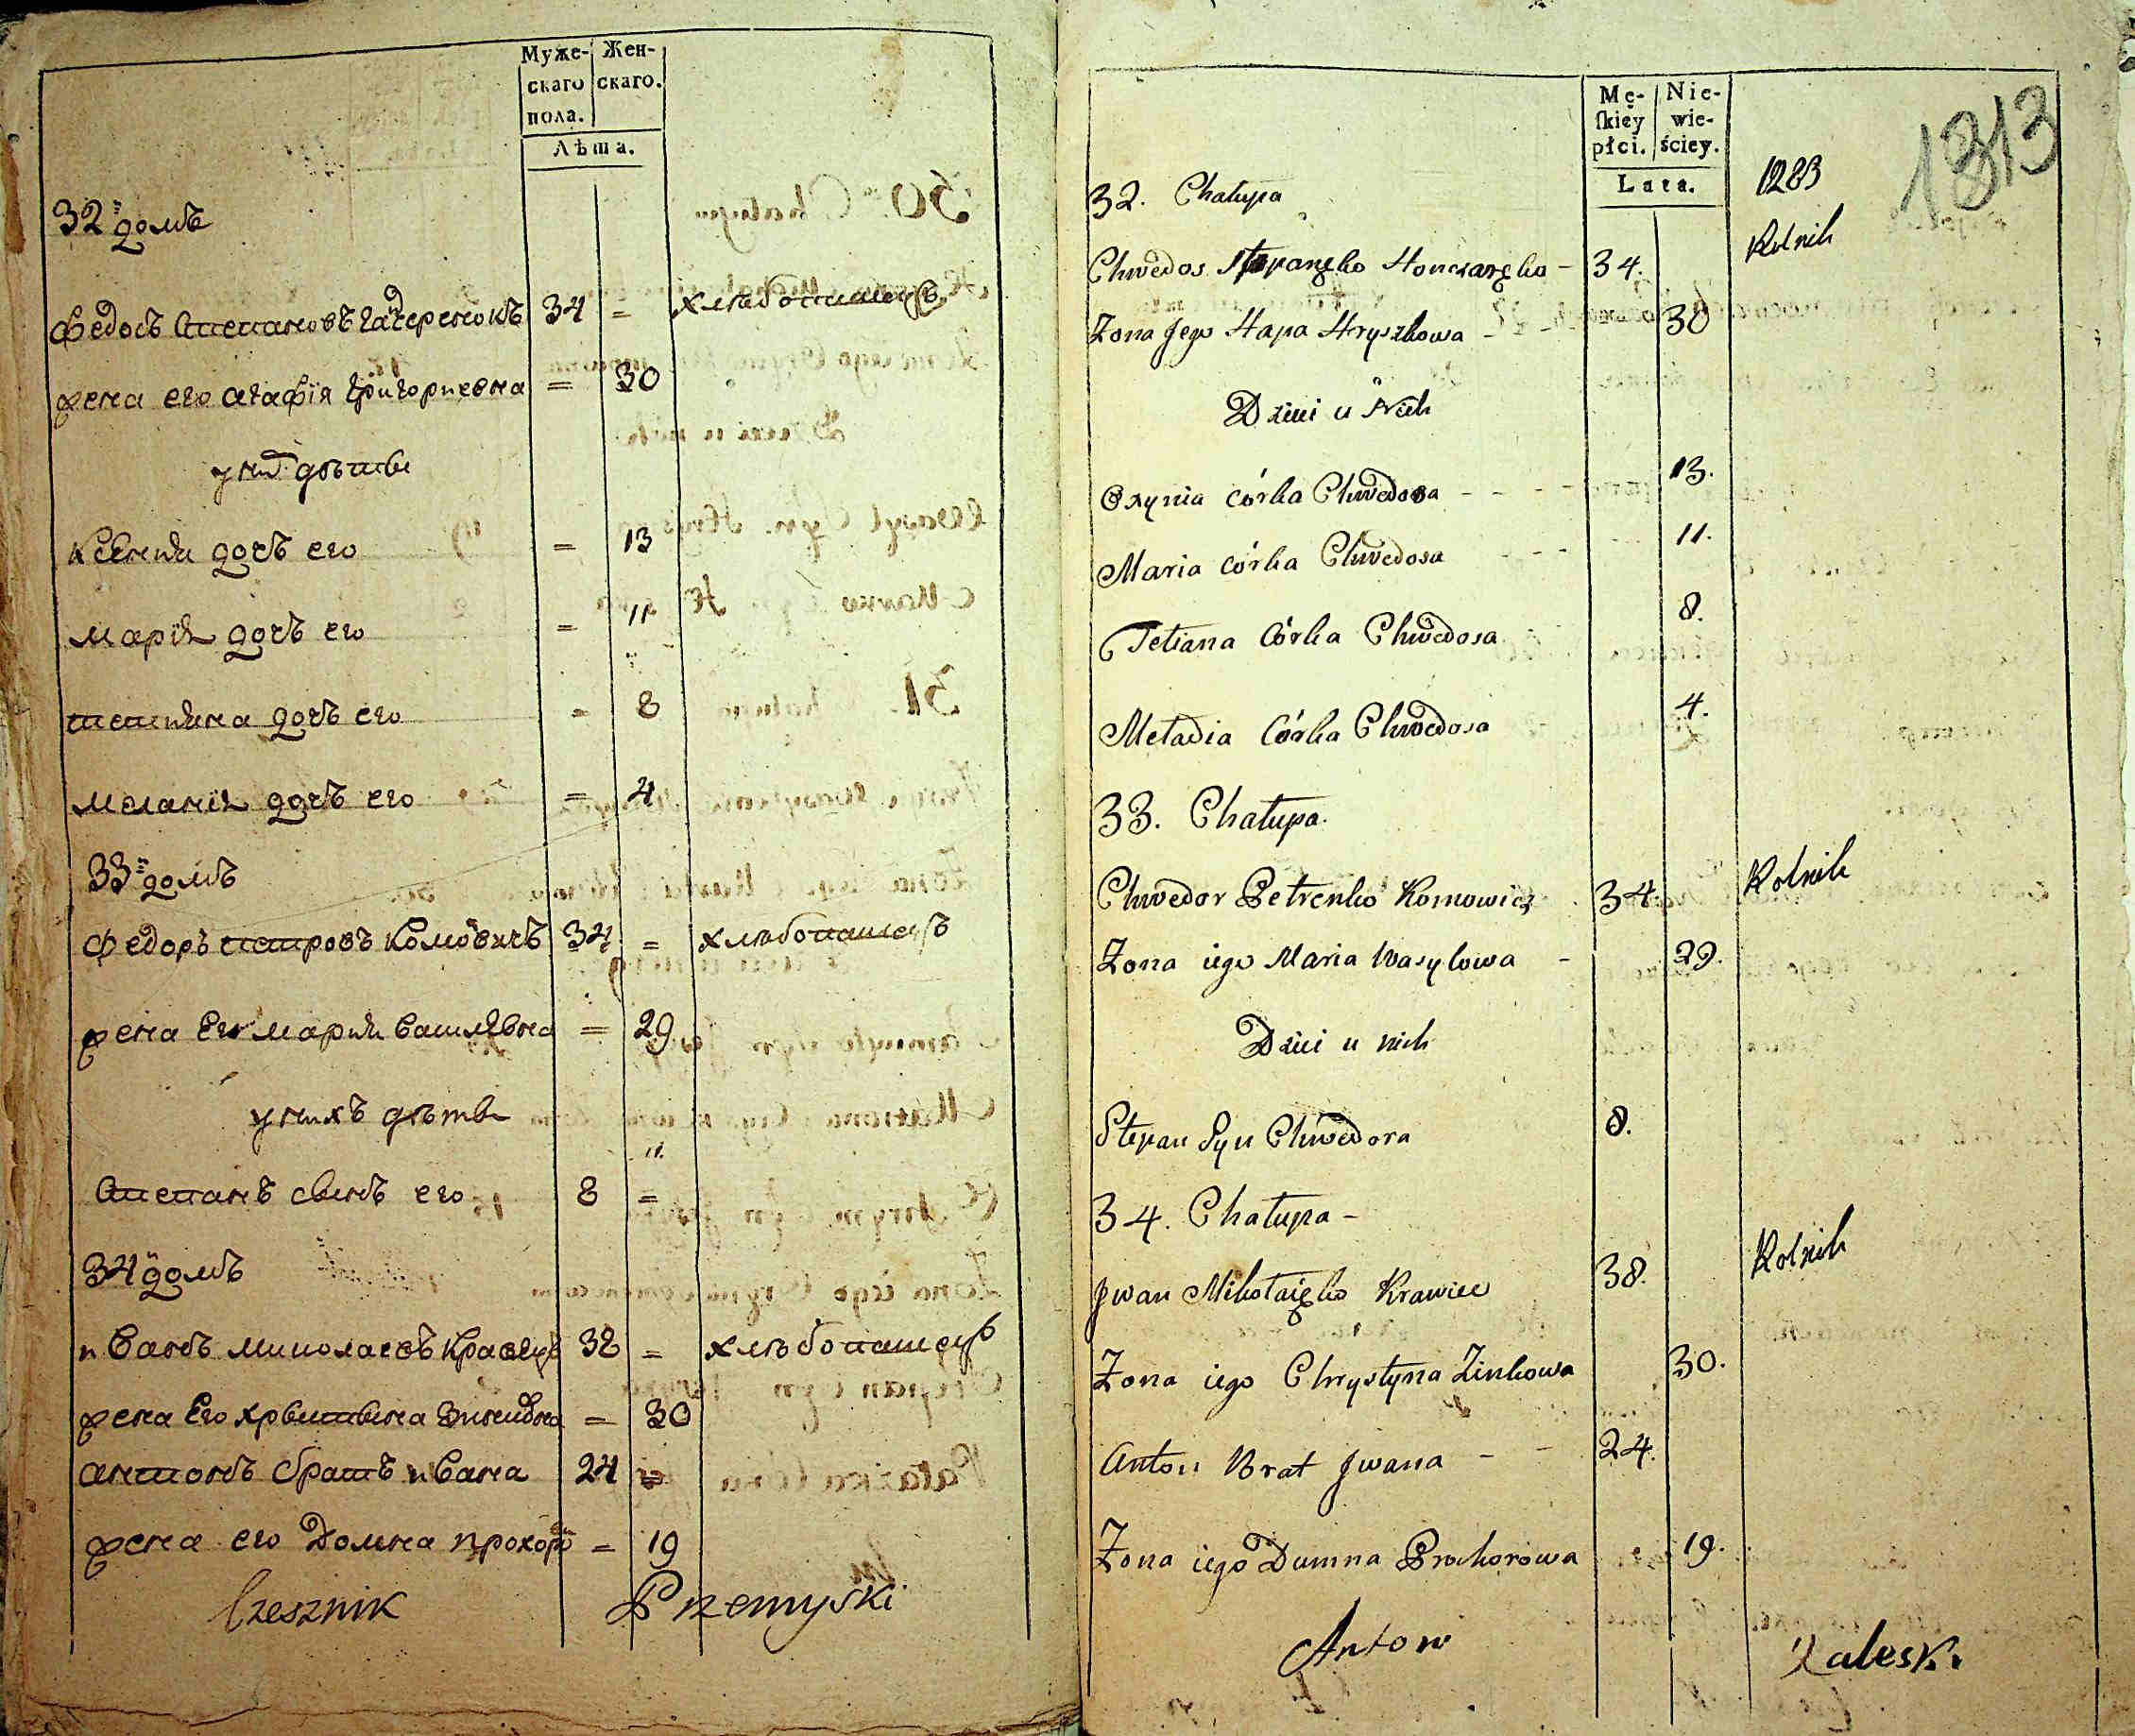 Муже-
скаго
пола.
Жен-
скаго.
Лѣта.
32й домъ
Федосъ Степановъ 34 = хлѣбопашецъ
жена его Агафія Григориевна = 30
у них дѣти
Ксения дочъ его = 13
Марія дочъ его = 11
Тетияна дочъ его = 8
Меланія дочъ его = 4
33й домъ
Федоръ Петровъ Комовичъ 34 = хлѣбопашецъ
жена Его Мария Василевна = 29
у нихъ дѣти
Степанъ сынъ его 8 =
34й домъ
Иванъ Миколаевъ Кравецъ 38 = хлѣбопашецъ
жена Его Хрыстына = 30
Антонъ братъ Ивана 24 =
жена его Домна = 19
Czesznik Przemyski
Mę-
skiey
płci.
Nie-
wie-
ściey.
Lata.
1313
1283
32. Chałupa
Chwedos Stepanęko Honczaręko - 34. Rolnik
Zona Jego Hapa Hryszkowa - 30
Dzieci u Nich
Oxynia córka Chwedosa - - - - 13.
Maria córka Chwedosa - - - 11.
Tetiana Córka Chwedosa 8.
Meładia Córka Chwedosa 4.
33. Chałupa.
Chwedor Petrenko Komowicz 34. Rolnik
Zona iego Maria Wasylowa - 29.
Dzieci u nich
Stepan Syn Chwedora 8.
34. Chałupa -
Jwan Mikołaięko Krawiec 38. Rolnik
Zona iego Chrystyna Zinkowa 30.
Anton Brat Jwana - - 24.
Zona iego Dumna Prochorowa 19.
Antoni Zaleski